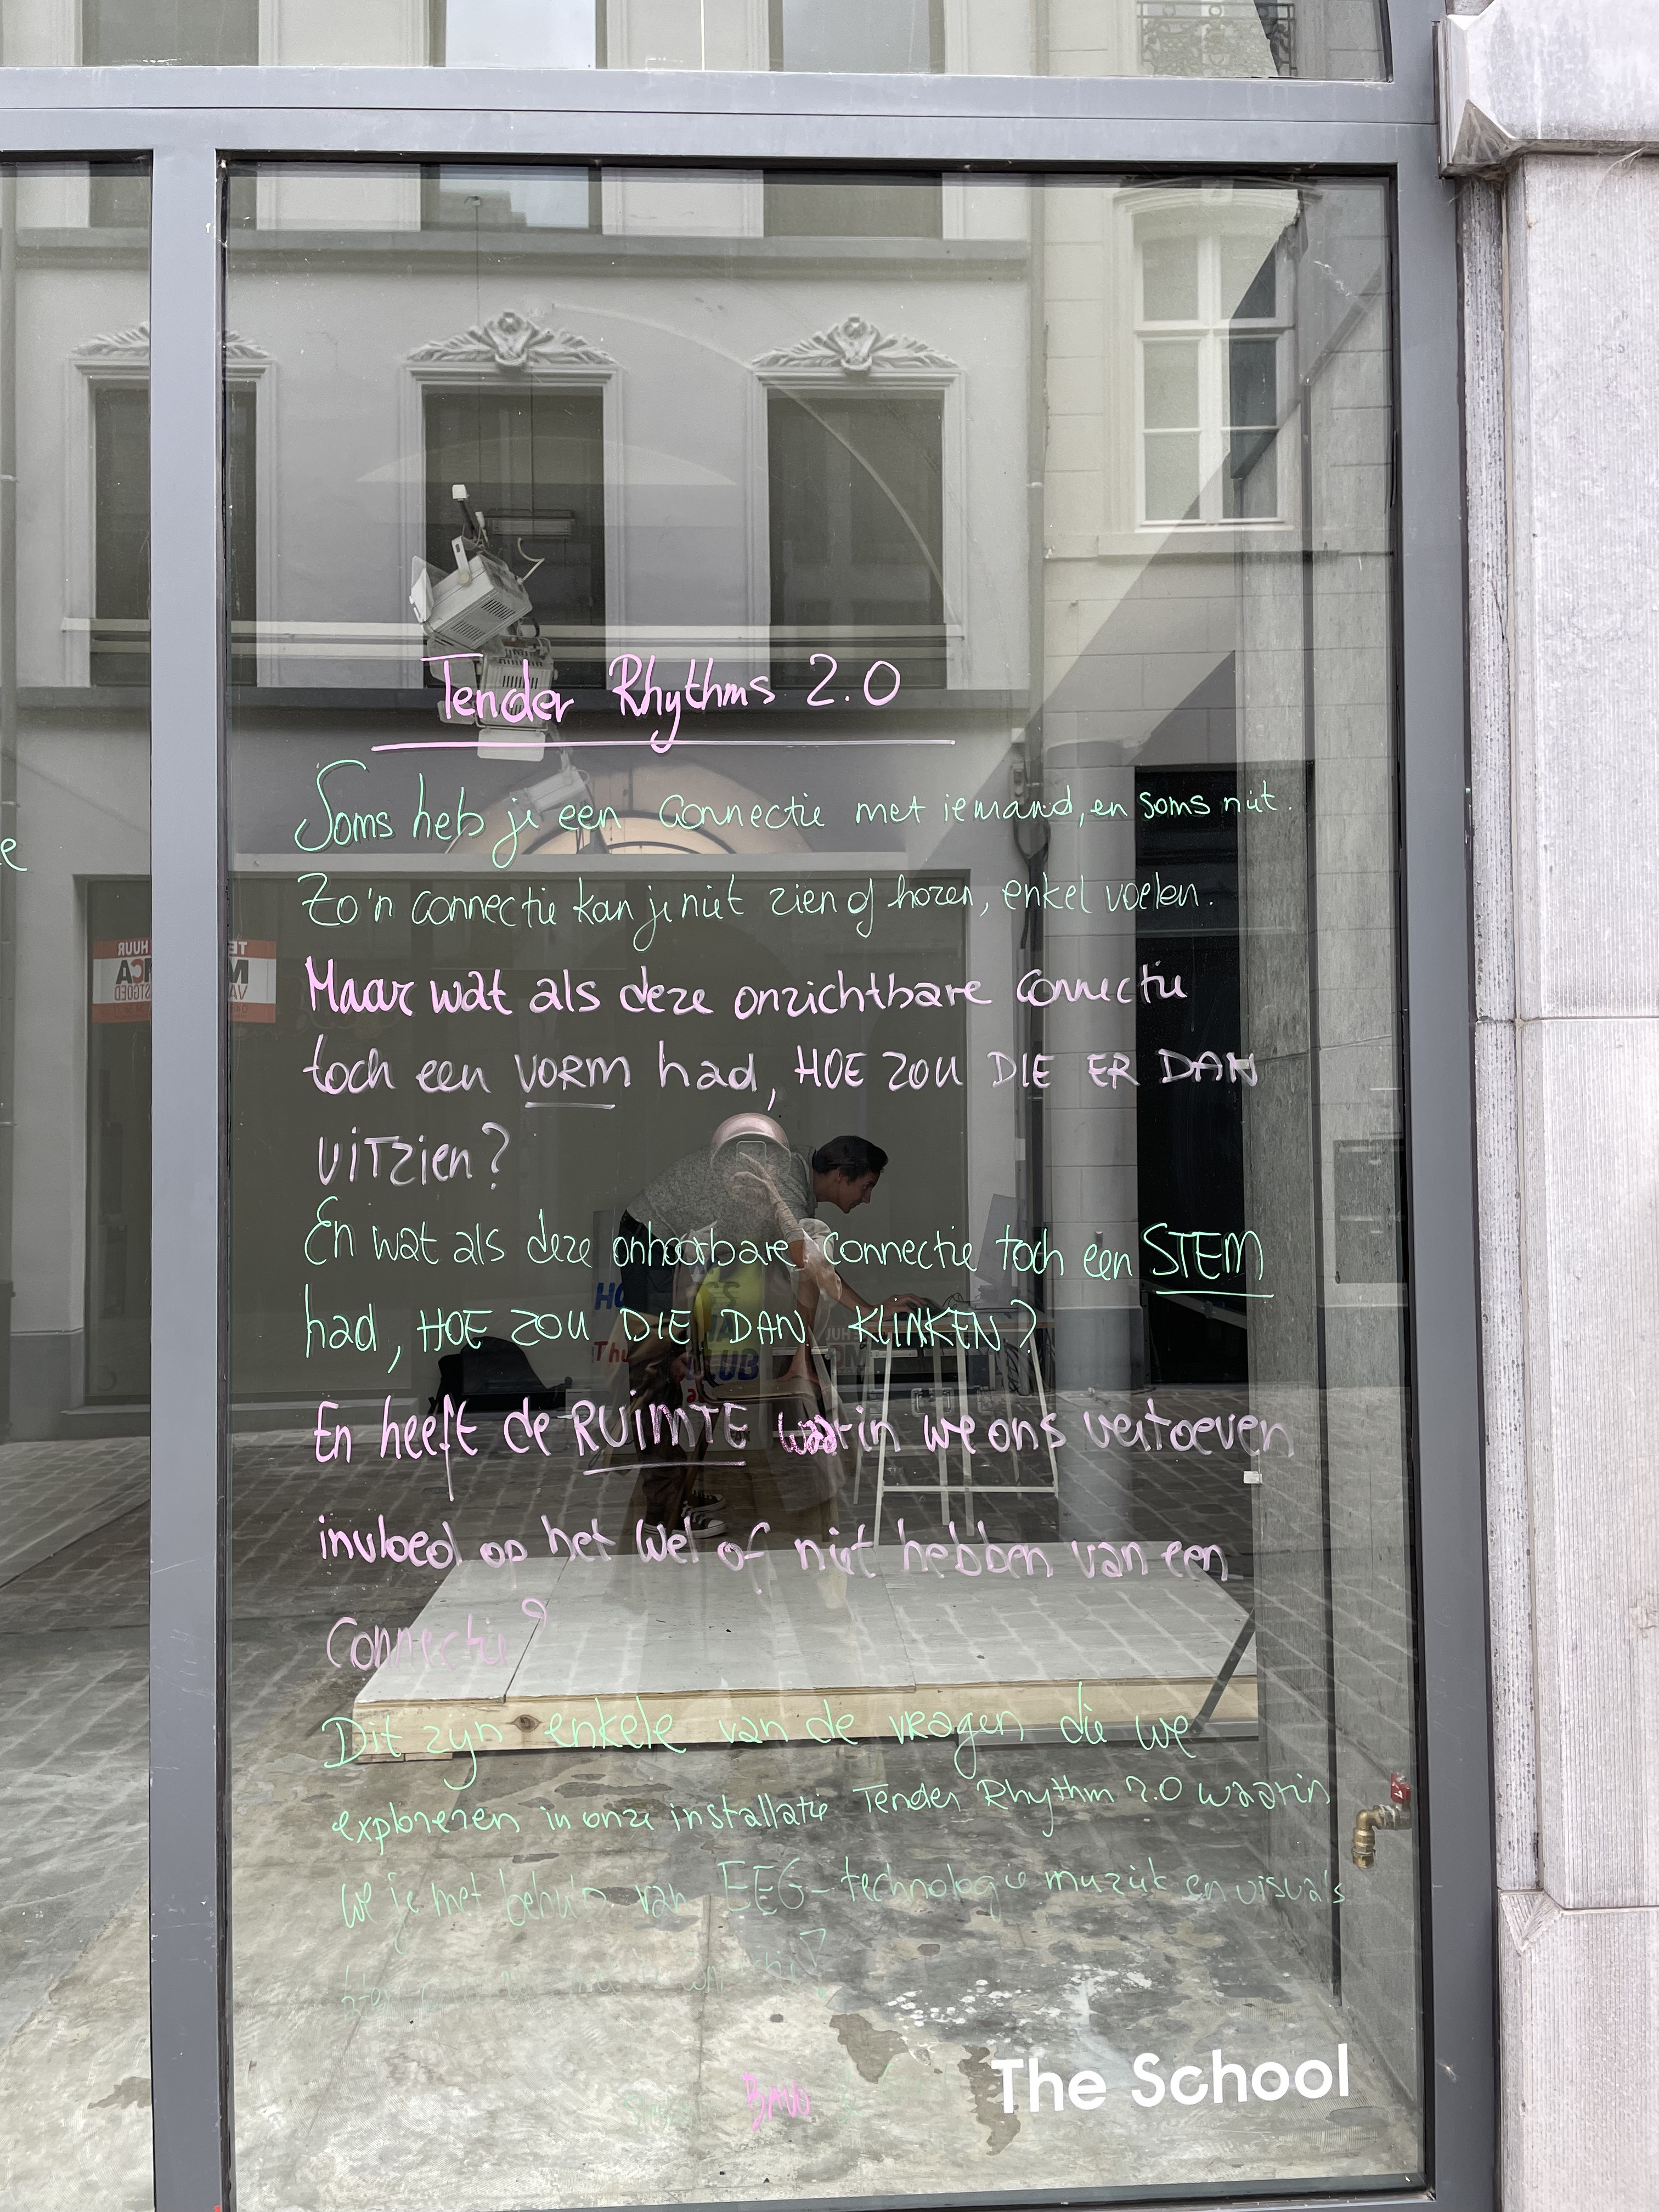 Tender Rhythms 2.0
Soms heb je een Connectie met iemand, en soms niet.
Zo'n connectie kan je niet zien of horen, enkel voelen.
Maar wat als deze onzichtbare connectie
toch een VORM had, HOE ZOU DIE ER DAN
UITzien?
En wat als deze onhoorbare connectie toch een STEM
had, HOE ZOU DIE DAN KLINKEN?
En heeft de RUIMTE waarin we ons vertoeven
invloed op het wel of niet hebben van een
Connectie?
Dit zijn enkele van de vragen die we
exploreren in onze installatie Tender Rhythm 2.0 waarin
we je met behulp van EEG-technologie muziek en visuals
The School
TE HUUR